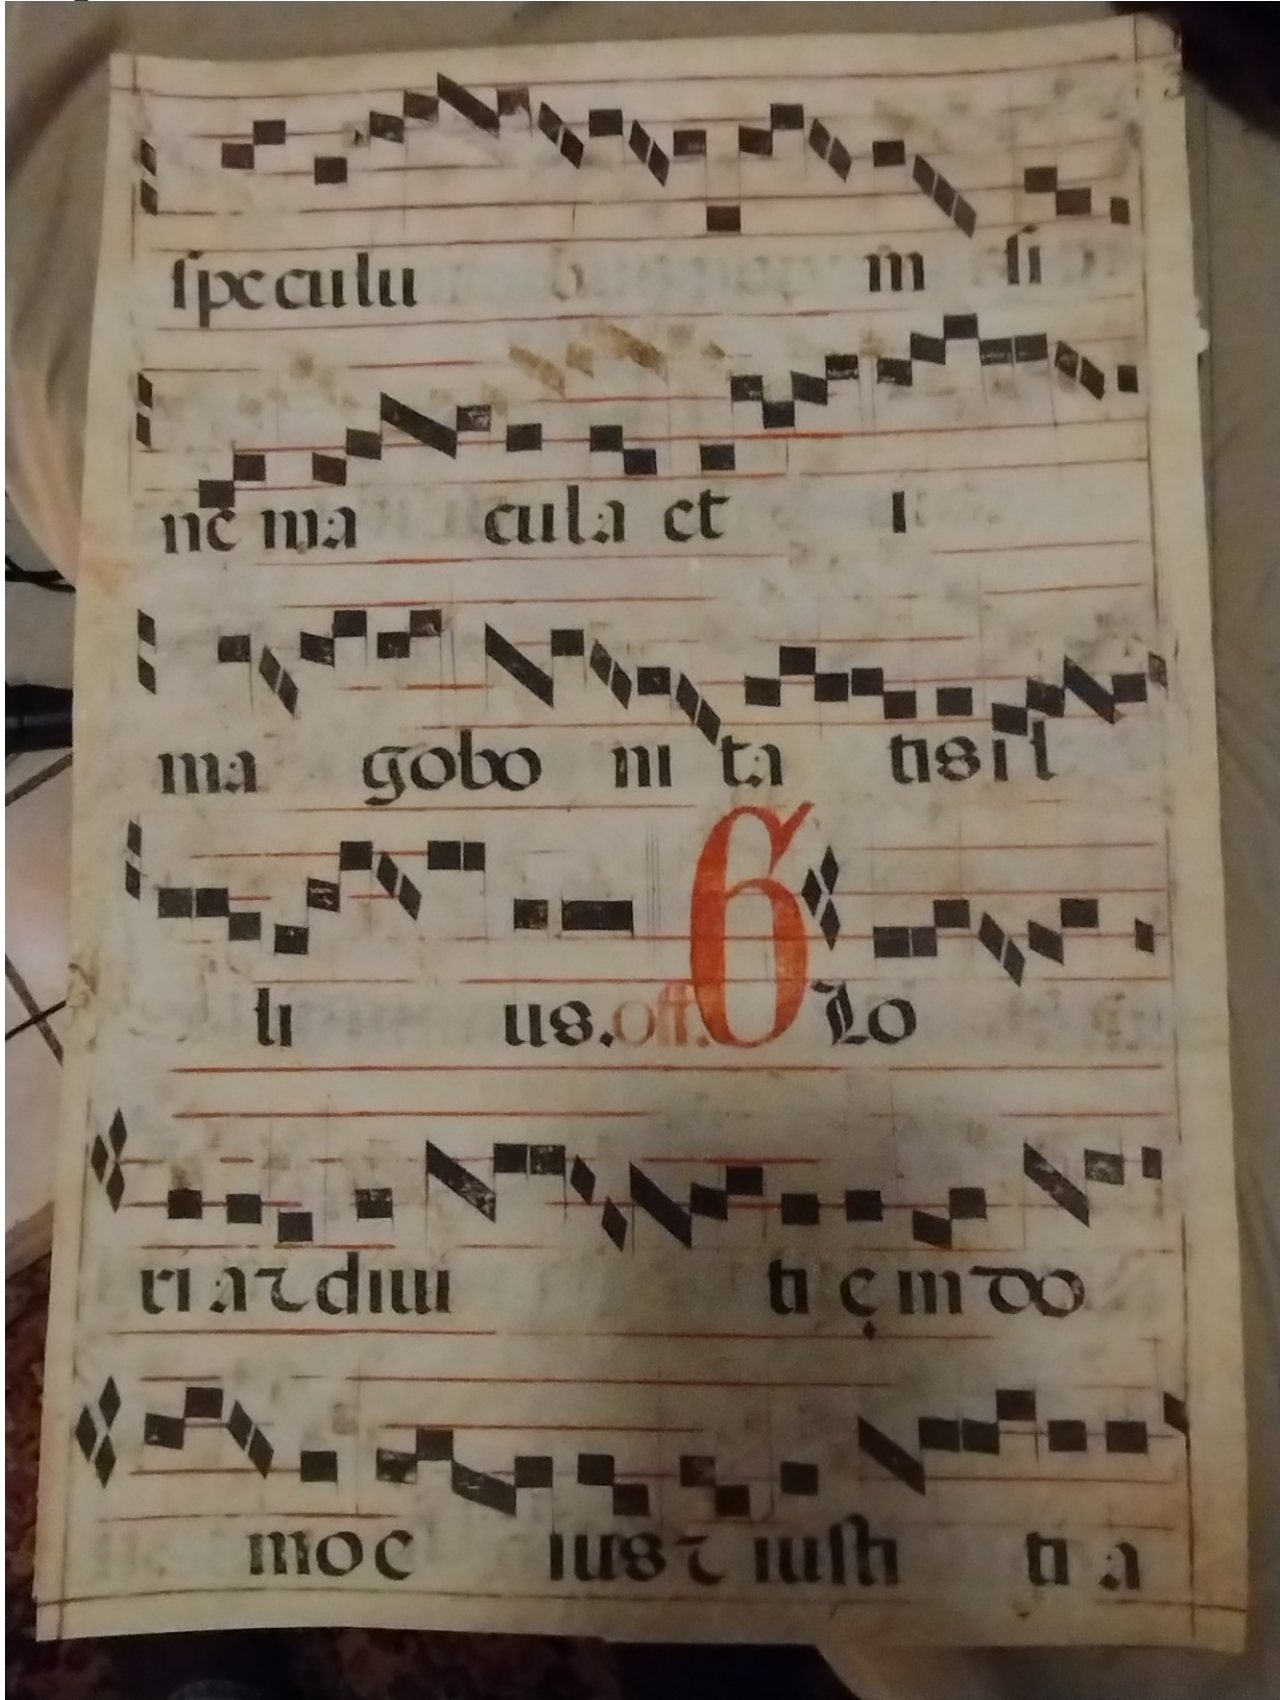 speculu m si
ne ma cula et i
ma go bo ni ta tis il
li us. off. G Lo
ri a ⁊ diui ti ę in do
mo e ius ⁊ iusti ti a